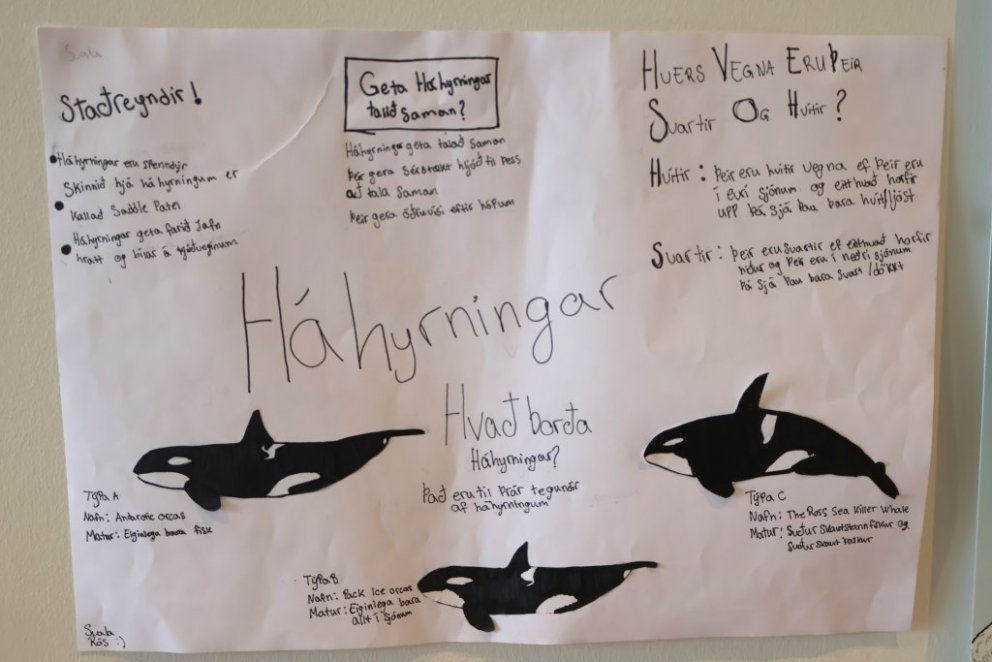 Staðreyndir!
Háhyrningar eru spendýr
Skinnið hjá háhyrningum er
Kallað Saddle Patch
Háhyrningar geta farið Jafn
hratt og bílar á þjóðveginum
Geta Háhyrningar
talið saman?
Háhyrningar geta talað saman
Þeir gera Sérstakt hjóð til þess
að tala saman
Þeir gera öðruvísi eftir hópum
HVERS VEGNA ERU ÞEIR
SVARTIR OG HVÍTIR?
Hvítir: Þeir eru hvítir vegna ef Þeir eru
í evri sjónum og eitthvað horfir
upp þá sjá Þau bara hvít/ljóst
Svartir: Þeir eru Svartir ef eitthvað horfir
niður og Þeir eru í neðri sjónum
þá sjá Þau bara svart/dökkt
Háhyrningar
Hvað borða
Háhyrningar?
Það eru til Þrár tegundir
af háhyrningum
Týpa A
Nafn: Antarctic orcas
Matur: Eiginlega bara fisk
Týpa B
Nafn: Pack Ice orcas
Matur: Eiginlega bara
allt í sjónum
Týpa C
Nafn: The Ross Sea Killer Whale
Matur: Suður Skautstannfiskur og
Suður Skaut
Rós :)